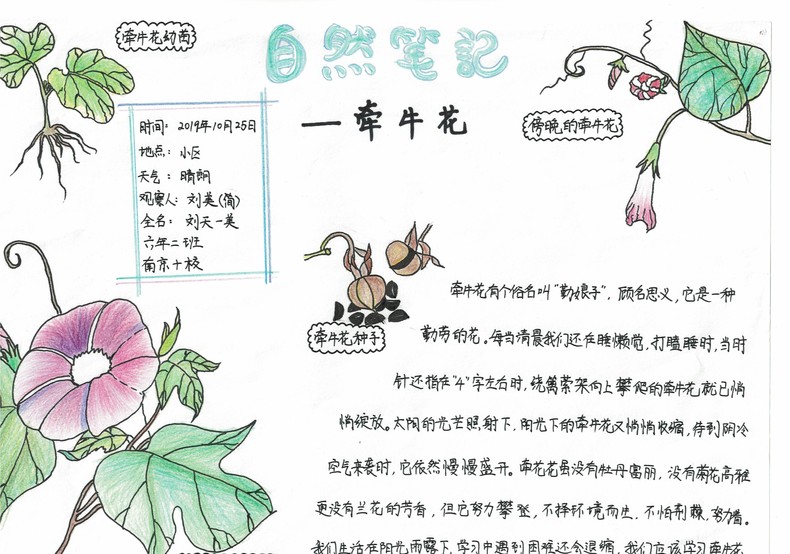 自然笔记
—牵牛花
牵牛花幼苗
时间：2019年10月25日
地点：小区
天气：晴朗
观察人：刘英(简)
全名：刘天一英
六年二班
南京十校
傍晚的牵牛花
牵牛花种子
牵牛花有个俗名叫“勤娘子”，顾名思义，它是一种
勤劳的花。每当清晨我们还在睡懒觉，打瞌睡时，当时
针还指在“4”字左右时，绕篱萦架向上攀爬的牵牛花就已悄
悄绽放。太阳的光芒照射下，阳光下的牵牛花又悄悄收缩，待到阴冷
空气来袭时，它依然慢慢盛开。牵花花虽没有牡丹富丽，没有菊花高雅
更没有兰花的芳香，但它努力攀登，不择环境而生，不怕荆棘，努墙。
我们生活在阳光雨露下，学习中遇到困难还会退缩，我们应该学习牵牛花